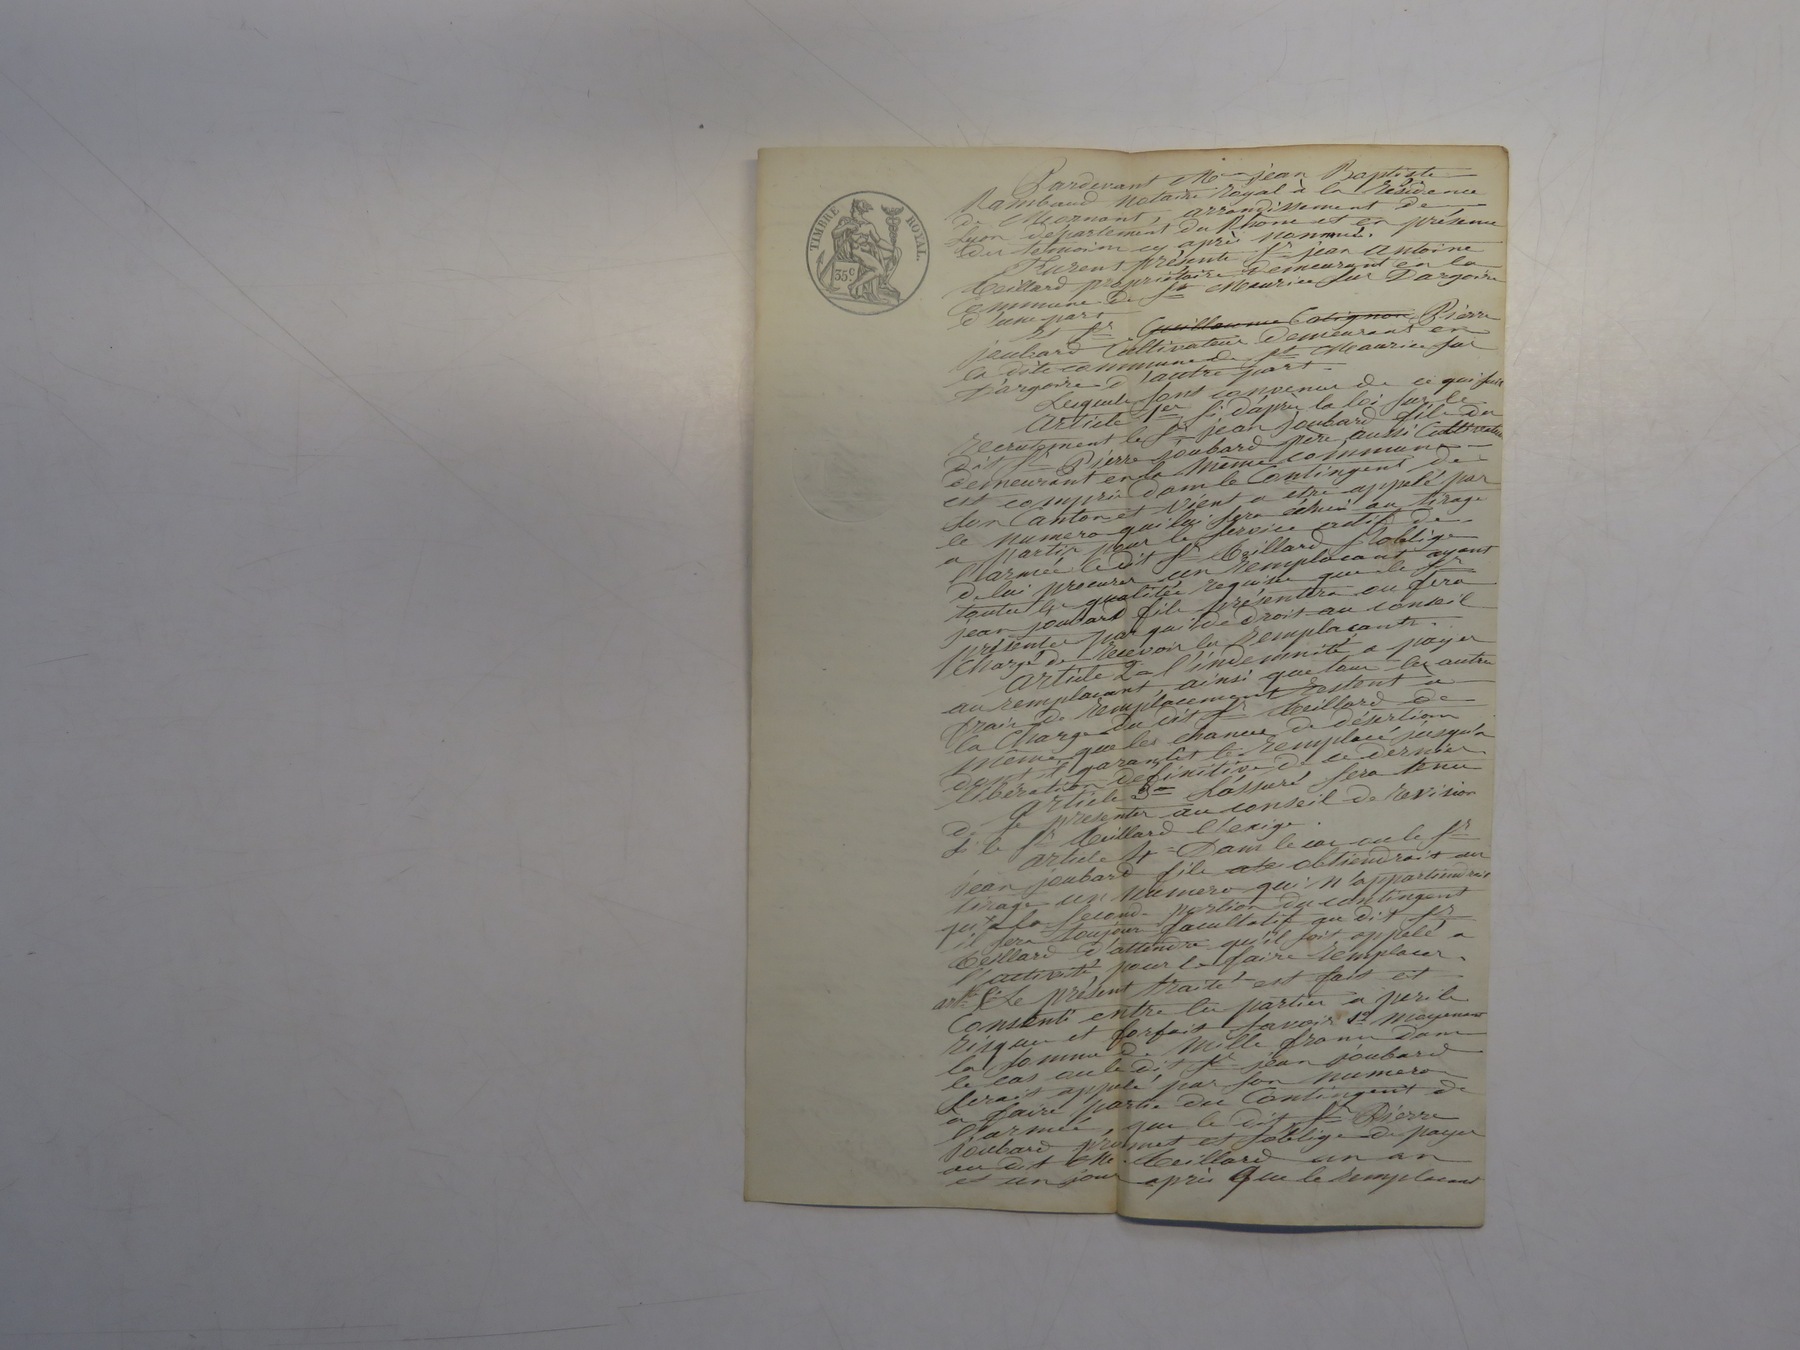 TIMBRE ROYAL.
35c
Pardevant Me jean Baptiste
Rambaud Notaire Royal à la Résidence
de Mornant, arrondissement de
Lyon departement du Rhône et en présence
des temoins cy après nommés.
Furent présents Sr jean Antoine
Teillard propriétaire demeurant en la
Commune de St Maurice sur Dargoire
d'une part
Et Sr Guillaume Cotignon Pierre
joubard Cultivateur demeurant en
la dite commune de St Maurice sur
Dargoire d'autre part.
Lesquels sont convenus de ce qui suit
Article 1er Si d'après la loi sur le
recrutement le Sr jean joubard fils du
dit Sr Pierre joubard père aussi Cultivateur
demeurant en la même commune
est compris dans le Contingent de
son Canton et vient a etre appelé par
le numero qui lui sera échu au tirage
a partir pour le service actif de
l'armée le dit Sr Teillard s'oblige
de lui procurer un remplacant ayant
toutes les qualités requises que le Sr
jean joubard fils présentera ou fera
présenter par qui de droit au conseil
Chargé de recevoir les remplacants.
Article 2e l'indemnité a payer
au remplacant, ainsi que tous les autres
frais de remplacement restent a
la Charge du dit Sr Teillard de
même que les chances de désertion
dont il garantit le remplacé jusqu'a
libération definitive de ce dernier
Article 3e L'assuré sera tenu
de se présenter au conseil de revision
si le Sr Teillard l'exige.
Article 4e Dans le cas ou le Sr
jean joubard fils obtiendrait au
tirage un numero qui n'appartiendrait
qu'a la seconde portion du contingent
il sera toujours facultatif au dit Sr
Teillard d'attendre qu'il soit appelé a
l'activité pour le faire remplacer.
art. 5e Le présent traité est fait et
Consenti entre les parties a perils
risques et forfait savoir 1o moyenant
la somme de mille francs dans
le cas ou le dit Sr jean joubard
serait appelé par son numero
a faire partie du Contingent de
l'armée, que le dit Sr Pierre
joubard promet et s'oblige de payer
au dit Me Teillard un an
et un jour après que le remplacant